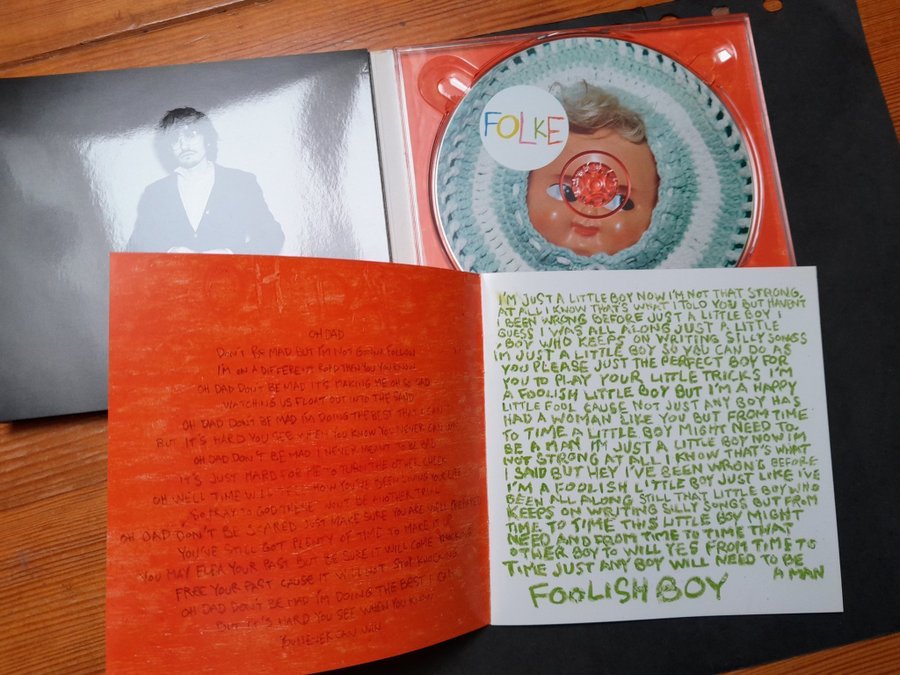 FOLKE
OH DAD
OH DAD
DON'T BE MAD BUT I'M NOT GONNA FOLLOW
I'M ON A DIFFERENT ROAD THEN YOU YOU KNOW
OH DAD DON'T BE MAD IT'S MAKING ME OH SO SAD
WATCHING US FLOAT OUT INTO THE SAND
OH DAD DON'T BE MAD I'M DOING THE BEST THAT I CAN
BUT IT'S HARD YOU SEE WHEN YOU KNOW YOU NEVER CAN WIN
OH DAD DON'T BE MAD I NEVER MEANT TO BE BAD
IT'S JUST HARD FOR ME TO TURN THE OTHER CHEEK
OH WELL TIME WILL TELL HOW YOU'VE BEEN LIVING YOUR LIFE
SO PRAY TO GOD THERE WON'T BE ANOTHER TRIAL
OH DAD DON'T BE SCARED JUST MAKE SURE YOU ARE WELL PREPARED
YOU'VE STILL GOT PLENTY OF TIME TO MAKE IT UP
YOU MAY FLEA YOUR PAST BUT BE SURE IT WILL COME KNOCKING
FREE YOUR PAST CAUSE IT WILL NOT STOP KNOCKING
OH DAD DON'T BE MAD I'M DOING THE BEST I CAN
BUT IT'S HARD YOU SEE WHEN YOU KNOW
YOU NEVER CAN WIN
I'M JUST A LITTLE BOY NOW I'M NOT THAT STRONG,
AT ALL I KNOW THAT'S WHAT I TOLD YOU BUT HAVEN'T
I BEEN WRONG BEFORE JUST A LITTLE BOY I
GUESS I WAS ALL ALONG JUST A LITTLE
BOY WHO KEEPS ON WRITING SILLY SONGS
I'M JUST A LITTLE BOY SO YOU CAN DO AS
YOU PLEASE JUST THE PERFECT BOY FOR
YOU TO PLAY YOUR LITTLE TRICKS I'M
A FOOLISH LITTLE BOY BUT I'M A HAPPY
LITTLE FOOL CAUSE NOT JUST ANY BOY HAS
HAD A WOMAN LIKE YOU BUT FROM TIME
TO TIME A LITTLE BOY MIGHT NEED TO
BE A MAN I'M JUST A LITTLE BOY NOW I'M
NOT STRONG AT ALL I KNOW THAT'S WHAT
I SAID BUT HEY I'VE BEEN WRONG BEFORE
I'M A FOOLISH LITTLE BOY JUST LIKE I'VE
BEEN ALL ALONG STILL THAT LITTLE BOY WHO
KEEPS ON WRITING SILLY SONGS BUT FROM
TIME TO TIME THIS LITTLE BOY MIGHT
NEED AND FROM TIME TO TIME THAT
OTHER BOY TO WILL YES FROM TIME TO
TIME JUST ANY BOY WILL NEED TO BE
A MAN
FOOLISH BOY